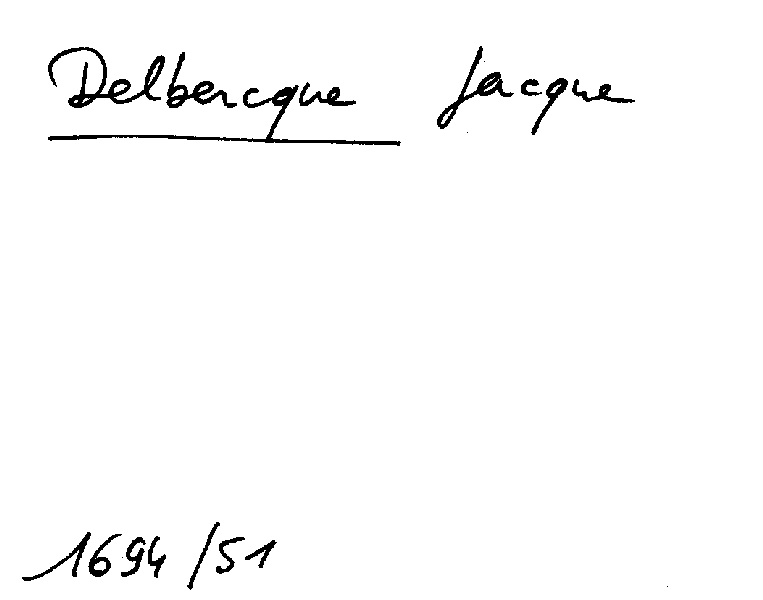 Delbercque Jacque
1694/51